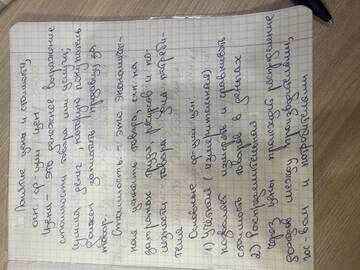 Понятие цены и стоимости,
осн. ф-ции цен
Цена - это денежное выражение
стоимости товара или услуги,
сумма денег, которую покупатель
должен заплатить продавцу за
товар.
Стоимость - это экономичес-
кая ценность товара, осн. на
затратах труда, ресурсов и по-
лезности товара для потреби-
теля
Основные ф-ции цен
1) Учётная (измерительная)
позволяет измерить и сравнивать
стоимость товаров в деньгах
2) Распределительная
через цены происходит распределение
доходов между производителями,
гос-вом и потребителем